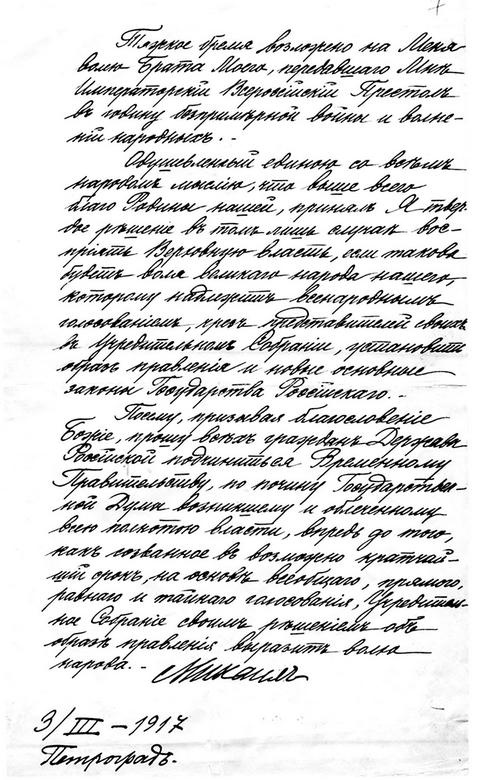 Тяжкое бремя возложено на Меня
волею Брата Моего, передавшаго Мнѣ
Императорскій Всероссійскій Престолъ
въ годину безпримѣрной войны и волне-
ній народныхъ. -
Одушевленный единою со всѣмъ
народомъ мыслію, что выше всего
благо Родины нашей, принялъ Я твер-
дое рѣшеніе въ томъ лишь случаѣ вос-
пріять Верховную власть, если такова
будетъ воля великаго народа нашего,
которому надлежитъ всенароднымъ
голосованіемъ, чрезъ представителей своихъ
въ Учредительномъ Собраніи, установить
образъ правленія и новые основные
законы Государства Россійскаго. -
Посему, призывая благословеніе
Божіе, прошу всѣхъ гражданъ Державы
Россійской подчиниться Временному
Правительству, по почину Государствен-
ной Думы возникшему и облеченному
всею полнотою власти, впредь до того,
какъ созванное въ возможно кратчай-
шій срокъ, на основѣ всеобщаго, прямого,
равнаго и тайнаго голосованія, Учредитель-
ное Собраніе своимъ рѣшеніемъ объ
образѣ правленія выразитъ волю
народа. -
Михаилъ
3/III - 1917
Петроградъ.